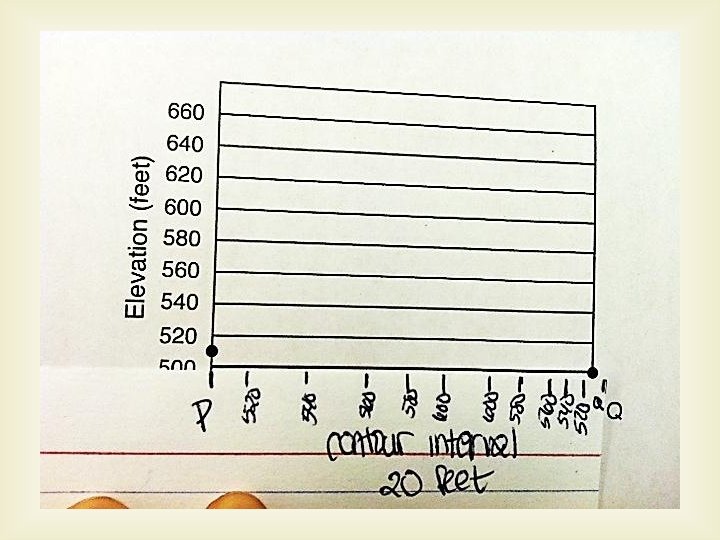 Elevation (feet)
660
640
620
600
580
560
540
520
500
P 520 540 560 580 600 600 580 560 540 520 Q
contour interval
20 feet